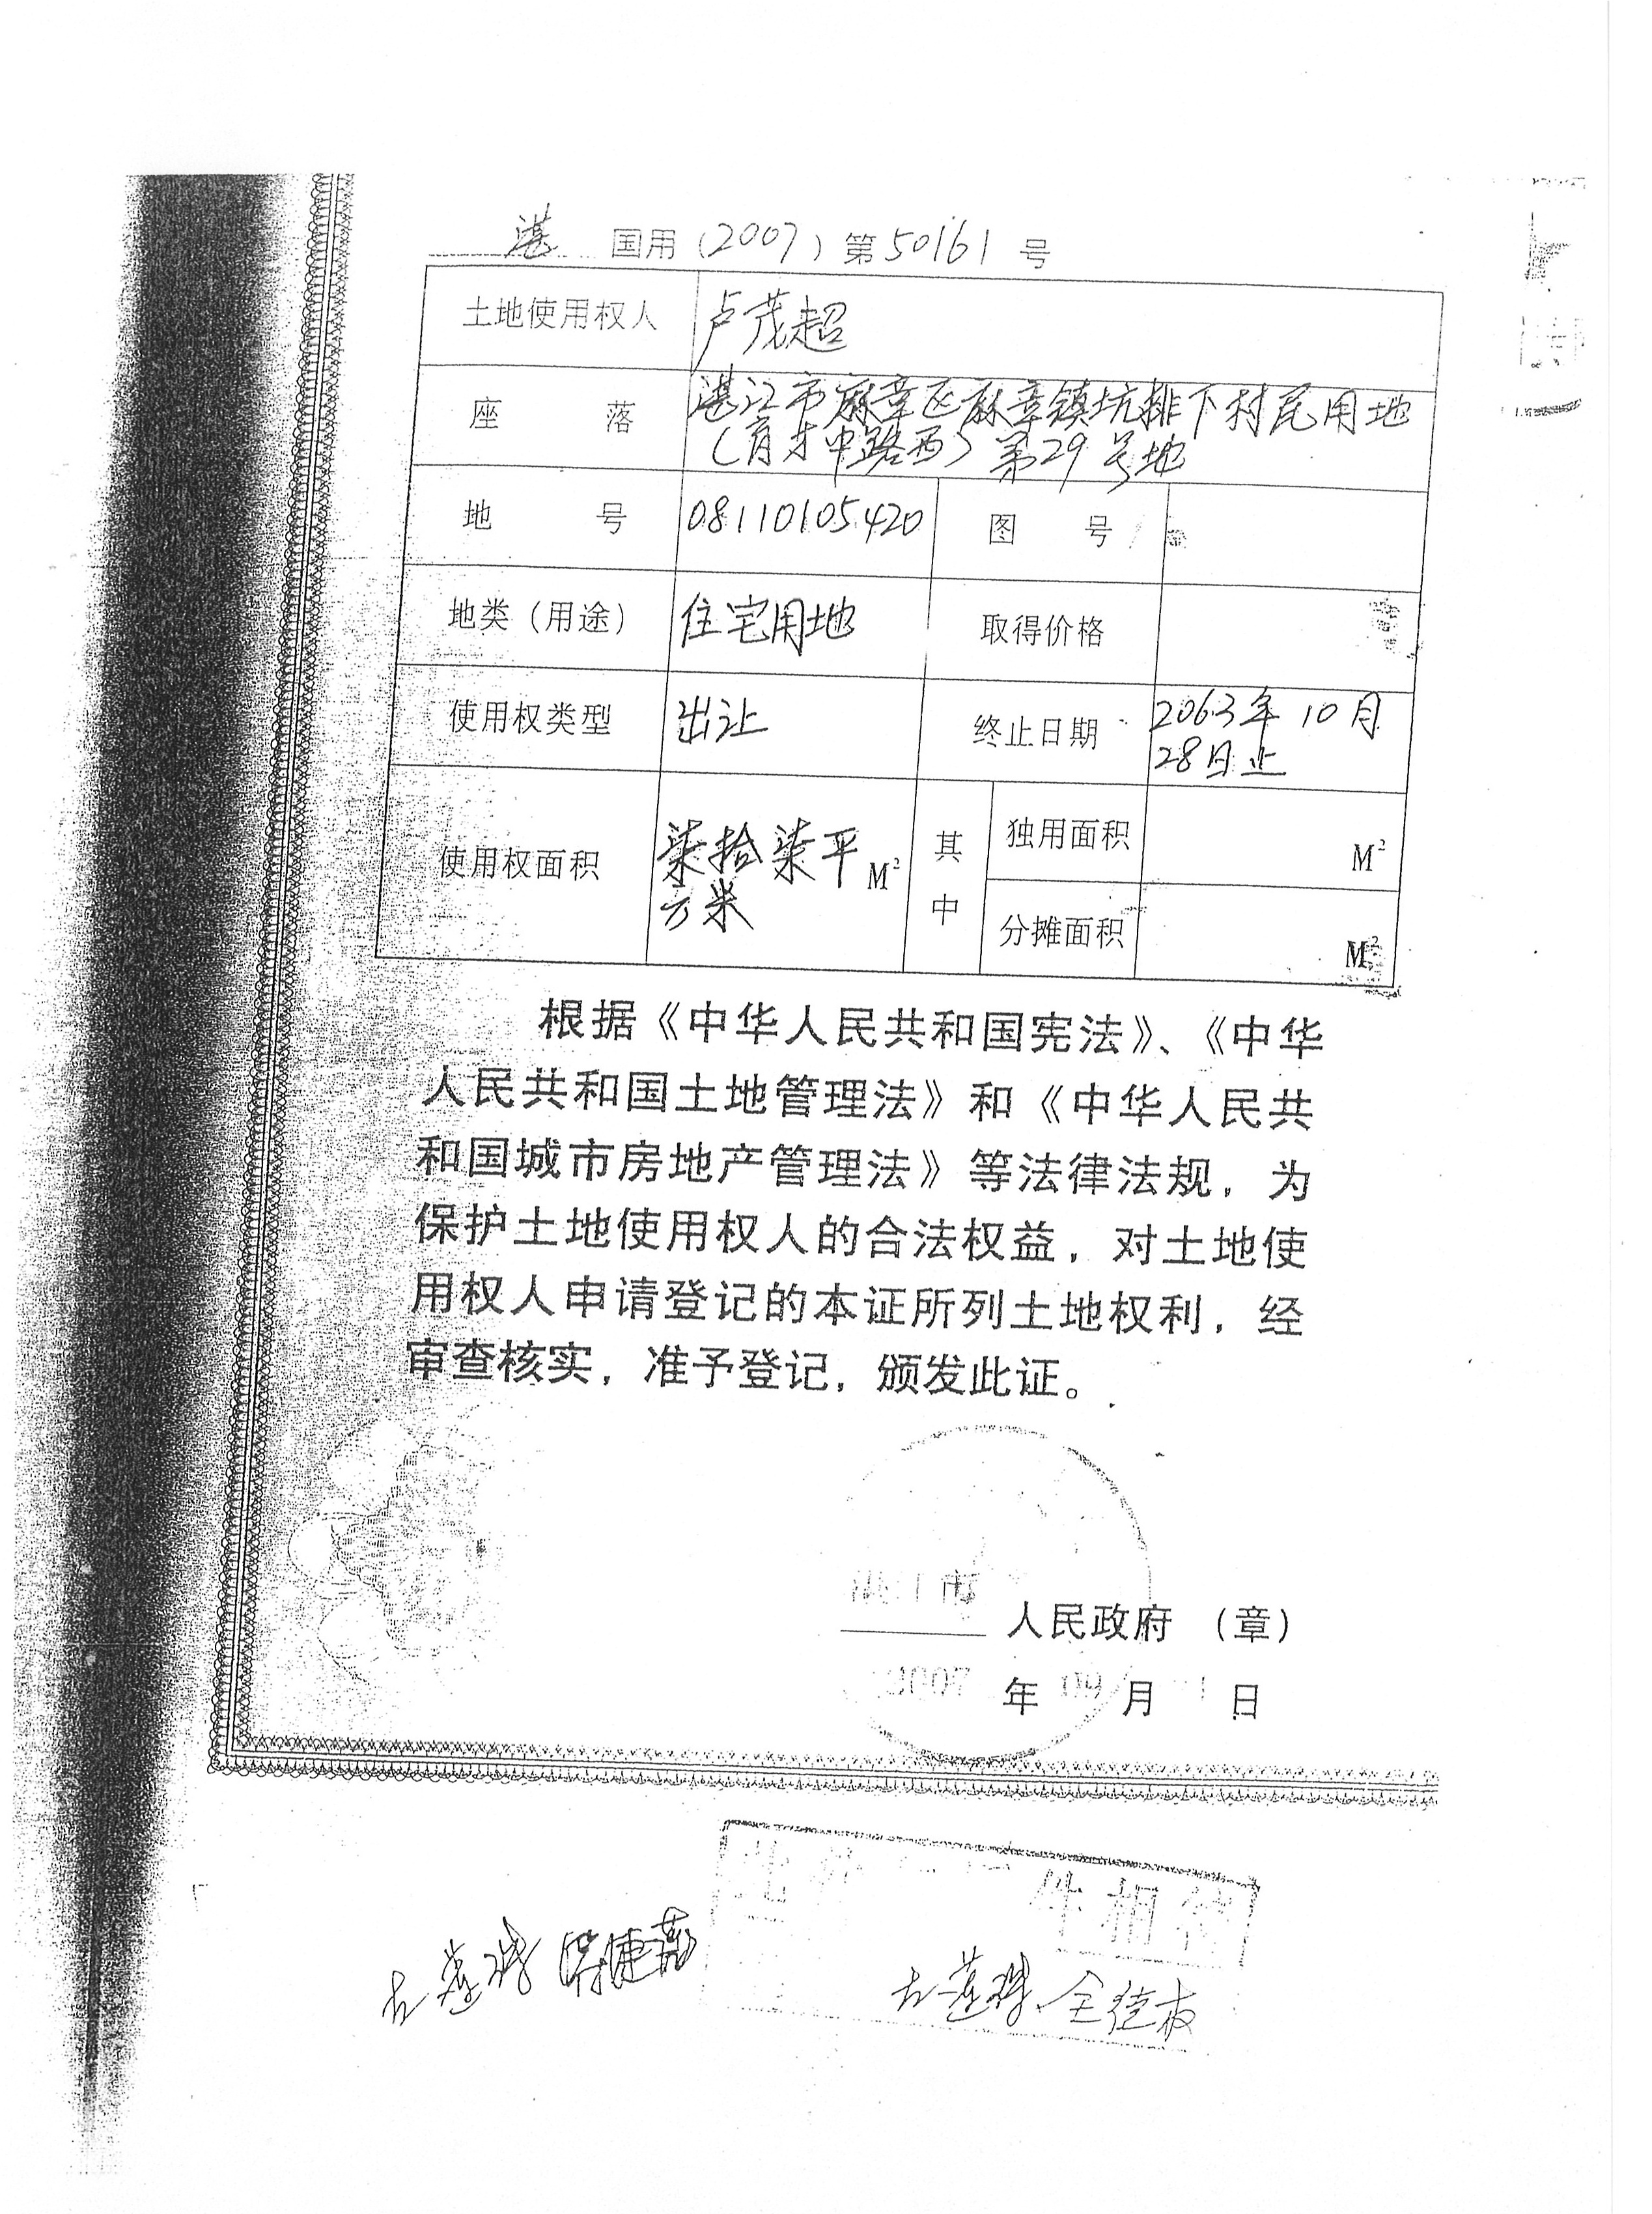 湛 国用（2007）第50161号
土地使用权人 卢茂超
座落 湛江市麻章区麻章镇坑排下村民用地
（育才中路西）第29号地
地号 08110105420 图号
地类（用途） 住宅用地 取得价格
使用权类型 出让 终止日期 2063年10月
28日止
使用权面积 柒拾柒平 M² 其中 独用面积 M²
方米 分摊面积 M²
根据《中华人民共和国宪法》、《中华
人民共和国土地管理法》和《中华人民共
和国城市房地产管理法》等法律法规，为
保护土地使用权人的合法权益，对土地使
用权人申请登记的本证所列土地权利，经
审查核实，准予登记，颁发此证。
人民政府（章）
年 月 日
件相符